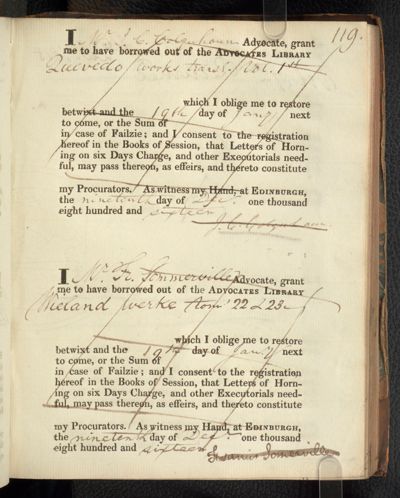 119.
I Mr. J. C. Colquhoun Advocate, grant
me to have borrowed out of the ADVOCATES LIBRARY
Quevedo's works transl. Vol. 1st
which I oblige me to restore
betwixt and the 19th day of Jany next
to come, or the Sum of
in case of Failzie; and I consent to the registration
hereof in the Books of Session, that Letters of Horn-
ing on six Days Charge, and other Executorials need-
ful, may pass thereon, as effeirs, and thereto constitute
my Procurators. As witness my Hand, at EDINBURGH,
the nineteenth day of Decr. one thousand
eight hundred and sixteen
J. C. Colquhoun
I Mr. Fr. Sommerville Advocate, grant
me to have borrowed out of the ADVOCATES LIBRARY
Wieland Werke tom. 22 & 23
which I oblige me to restore
betwixt and the 19th day of Jany next
to come, or the Sum of
in case of Failzie; and I consent to the registration
hereof in the Books of Session, that Letters of Horn-
ing on six Days Charge, and other Executorials need-
ful, may pass thereon, as effeirs, and thereto constitute
my Procurators. As witness my Hand, at EDINBURGH,
the nineteenth day of Decr. one thousand
eight hundred and sixteen
Francis Somerville